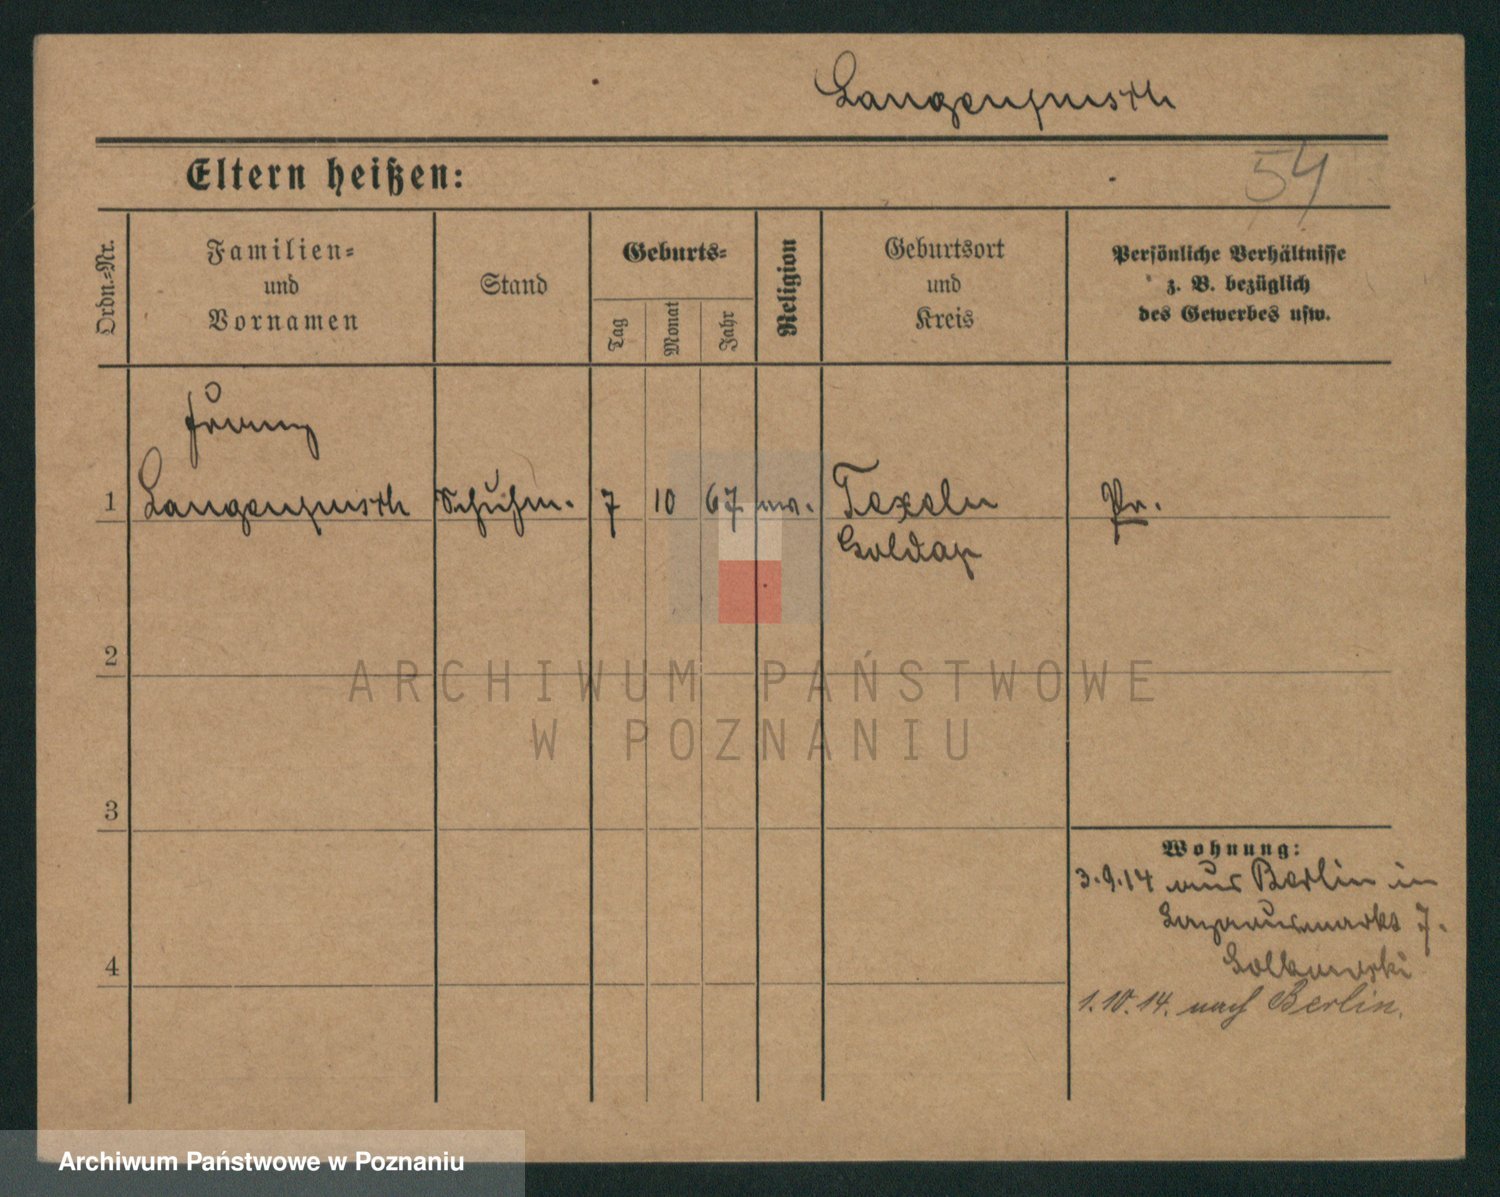 Langenfurth
Eltern heißen:
54
Ordn.-Nr.
Familien-
und
Vornamen
Stand
Geburts-
Tag
Monat
Jahr
Religion
Geburtsort
und
Kreis
Persönliche Verhältnisse
z. B. bezüglich
des Gewerbes usw.
Franz
1 Schuhm. 7 10 67 ev. Texeln Pr.
Goldap
2
ARCHIWUM PAŃSTWOWE
W POZNANIU
3
Wohnung:
3.9.14 aus Berlin in
Lazarusmarkt 7.
4
1.10.14. nach Berlin.
Archiwum Państwowe w Poznaniu